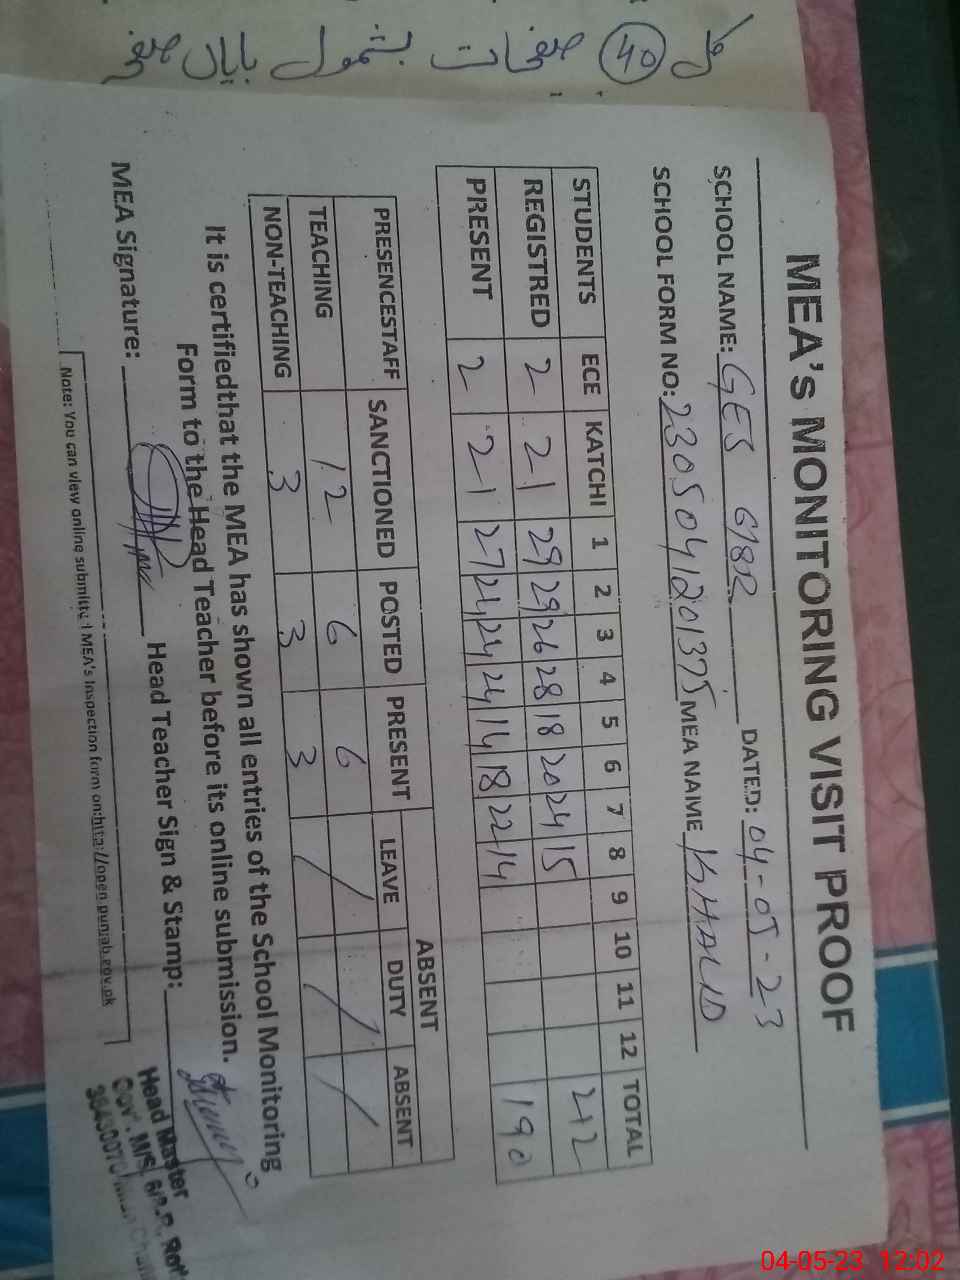 MEA's MONITORING VISIT PROOF
SCHOOL NAME: GES 6/8R DATED: 04-05-23
SCHOOL FORM NO: 2305041201375 MEA NAME KHALID
STUDENTS ECE KATCHI 1 2 3 4 5 6 7 8 9 10 11 12 TOTAL
REGISTRED 2 21 29 29 26 28 18 20 24 15 212
PRESENT 2 21 27 24 24 24 14 18 22 14 190
PRESENCESTAFF SANCTIONED POSTED PRESENT ABSENT
LEAVE DUTY ABSENT
TEACHING 12 6 6 / / /
NON-TEACHING 3 3 3 / / /
It is certifiedthat the MEA has shown all entries of the School Monitoring
Form to the Head Teacher before its online submission.
MEA Signature: Head Teacher Sign & Stamp:
Head Master
Govt. M/S 6/8.R,
Note: You can view online submitted MEA's Inspection form on:http://open.punjab.gov.pk
40
04-05-23 12:02